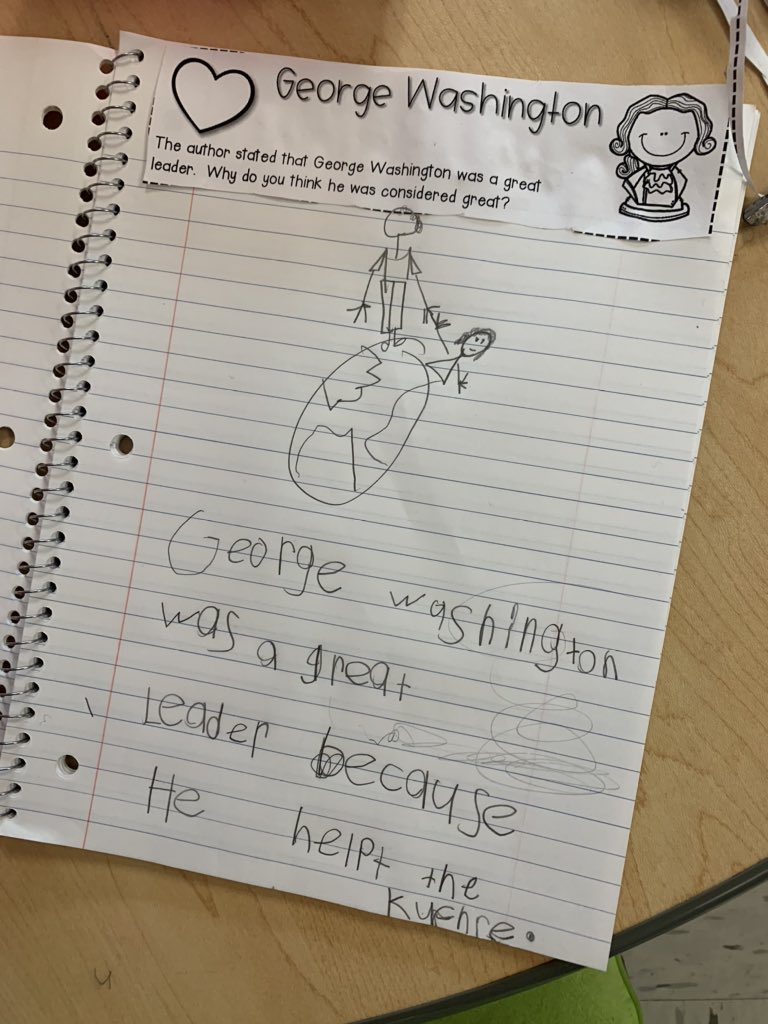 George Washington
The author stated that George Washington was a great
leader. Why do you think he was considered great?
George washington
was a great
Leader because
He helpt the
kuchre.